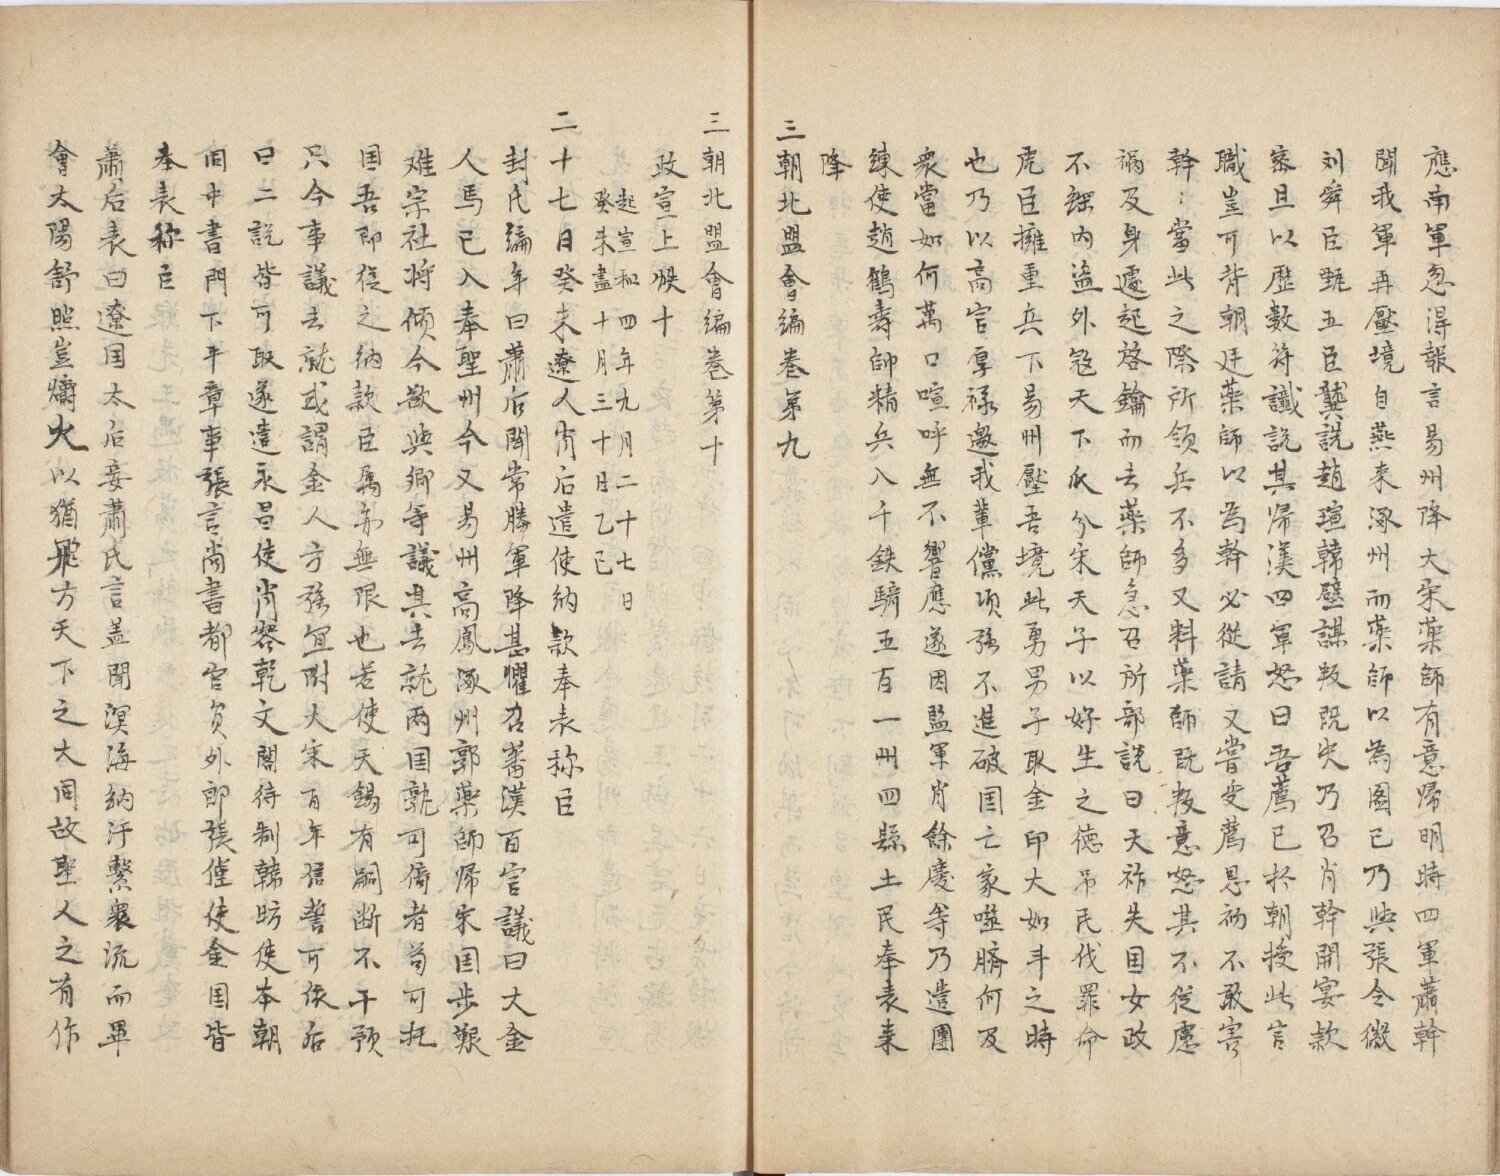 應南軍忽得報言易州降大宋藥師有意帰明時四軍蕭幹
聞我軍再壓境自燕来涿州而藥師以為圖已乃與張令徽
刘舜臣甄五臣龔説趙瑄韓璧謀叛既失乃召肖幹開宴款
宻且以歴数符讖説其帰漢四軍怒曰吾薦已於朝授此言
職豈可背朝廷藥師以為幹必從請又嘗受薦恩祸不敢害
幹：當此之際所领兵不多又料藥師既叛意怒其不従慮
禍及身遽起啓鑰而去藥師急召所部説曰天祚失国女政
不綱内盗外寇天下瓜分宋天子以好生之德吊民伐罪命
虎臣擁重兵下易州壓吾境此勇男子取金印大如斗之時
也乃以高官厚禄邀我輩儻项强不進破国亡家噬臍何及
衆當如何萬口喧呼無不響應遂因監軍肖餘慶等乃遣團
練使趙鶴壽師精兵八千鉄騎五百一州四縣土民奉表来
降
三朝北盟會编巻第九
三朝北盟會编巻第十
政宣上帙十
起宣和四年九月二十七日
癸未盡十月三十日乙已
二十七日癸未遼人肖后遣使納款奉表称臣
封氏编年曰蕭后聞常勝軍降甚懼召蕃漢百官議曰大金
人馬已入奉聖州今又易州高鳳涿州郭藥師帰宋国步艱
难宗社将倾今欲與卿等議其去就两国孰可倚者苟可托
国吾即従之納款臣属亦無限也若使天錫有嗣断不干预
只今事議去就或謂金人方强宜附大宋百年信誓可依后
曰二説皆可取遂遣永昌使肖容乾文閣待制韓昉使本朝
同中書門下平章事張言尚書都官負外郎張僅使金国皆
奉表称臣
蕭后表曰遼国太后妾蕭氏言盖聞溟海納汙繫衆流而畢
會太陽舒照豈爝火以猶飛方天下之大同故聖人之有作